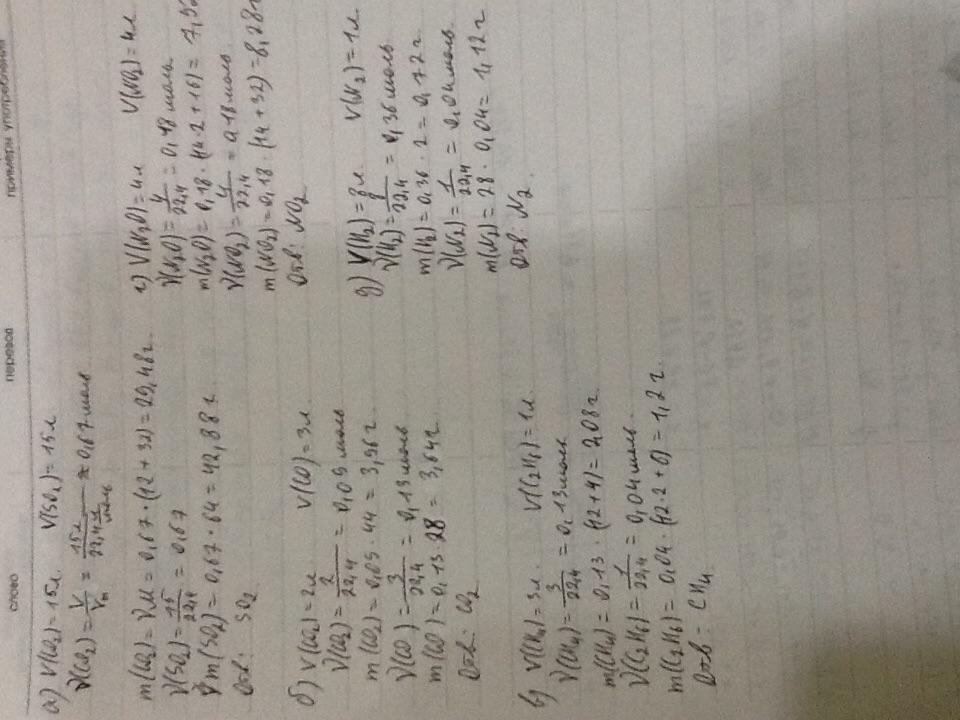 слово перевод примеры употребления
а) V(CO₂) = 15 л. V(SO₂) = 15 л
ν(CO₂) = V/Vm = 15 л/22,4 л/моль ≈ 0,67 моль
m(CO₂) = νM = 0,67 · (12 + 32) = 29,48 г.
ν(SO₂) = 15/22,4 = 0,67
m(SO₂) = 0,67 · 64 = 42,88 г
Отв: SO₂
б) V(CO₂) = 2 л V(CO) = 3 л
ν(CO₂) = 2/22,4 = 0,09 моль
m(CO₂) = 0,09 · 44 = 3,96 г
ν(CO) = 3/22,4 = 0,13 моль
m(CO) = 0,13 · 28 = 3,64 г
Отв: CO₂
в) V(CH₄) = 3 л. V(C₂H₆) = 1 л.
ν(CH₄) = 3/22,4 = 0,13 моль
m(CH₄) = 0,13 · (12 + 4) = 2,08 г
ν(C₂H₆) = 1/22,4 = 0,04 моль
m(C₂H₆) = 0,04 · (12 · 2 + 6) = 1,2 г.
Отв: CH₄
г) V(N₂O) = 4 л V(NO₂) = 4 л
ν(N₂O) = 4/22,4 = 0,18 моль
m(N₂O) = 0,18 · (14 · 2 + 16) = 7,92
ν(NO₂) = 4/22,4 = 0,18 моль
m(NO₂) = 0,18 · (14 + 32) = 8,28 г
Отв: NO₂
д) V(H₂) = 8 л. V(N₂) = 1 л
ν(H₂) = 8/22,4 = 0,36 моль
m(H₂) = 0,36 · 2 = 0,72 г
ν(N₂) = 1/22,4 = 0,04 моль
m(N₂) = 28 · 0,04 = 1,12 г
Отв: N₂.